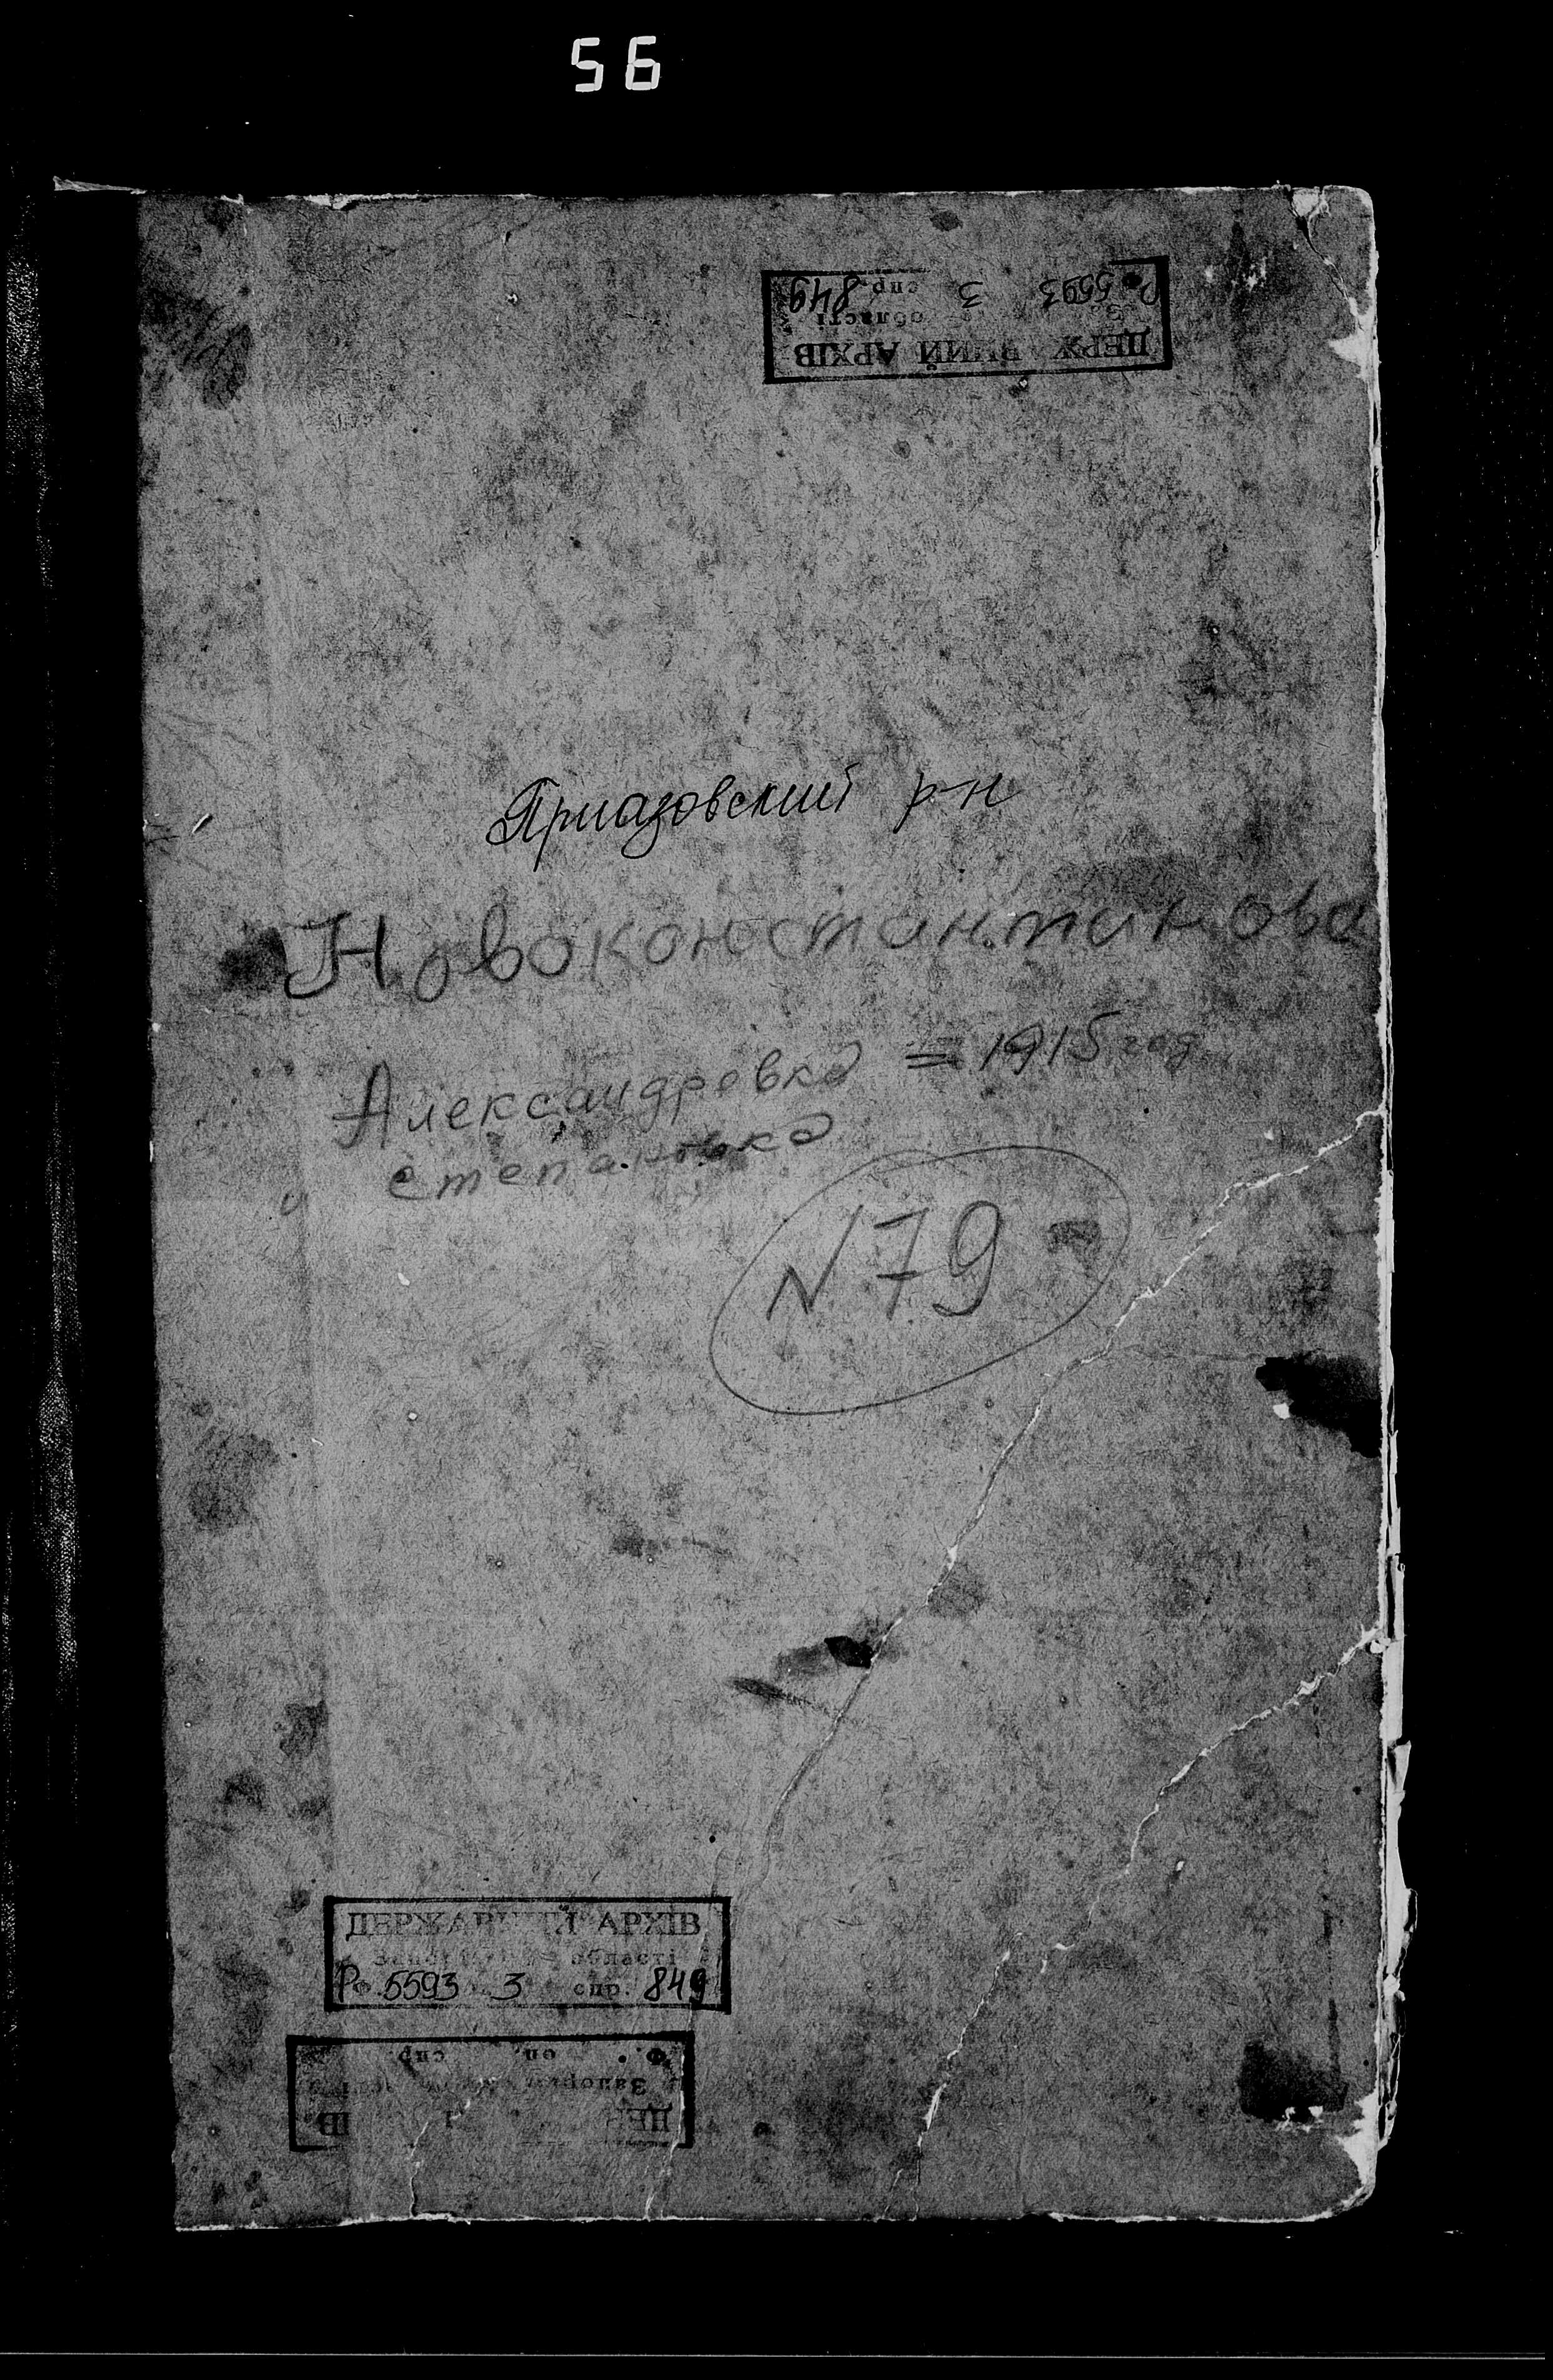 56
ДЕРЖАВНИЙ АРХІВ
області
Р. 5593 3 спр. 849
Приазовский р-н
Новоконстантинова
Александровка = 1915 год
степановка
N 79
ДЕРЖАВНИЙ АРХІВ
області
РФ. 5593 3 спр. 849
Ф. оп. спр.